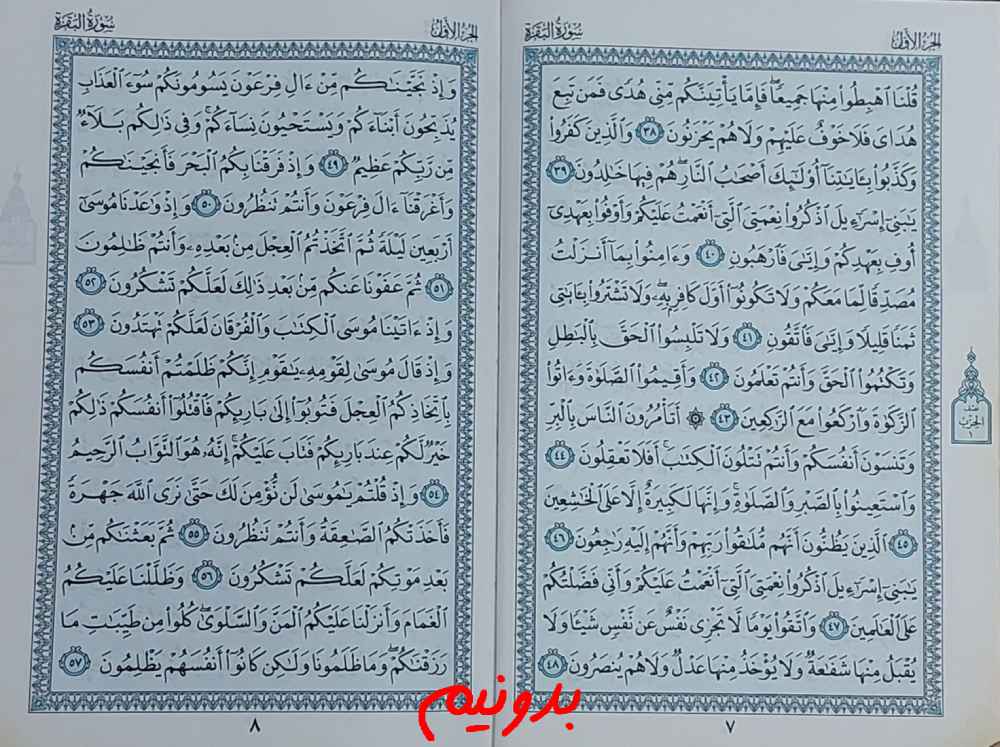 الجزء الأول
سورة البقرة
قُلْنَا اهْبِطُوا مِنْهَا جَمِيعًا فَإِمَّا يَأْتِيَنَّكُم مِّنِّي هُدًى فَمَن تَبِعَ
هُدَايَ فَلَا خَوْفٌ عَلَيْهِمْ وَلَا هُمْ يَحْزَنُونَ ٣٨ وَالَّذِينَ كَفَرُوا
وَكَذَّبُوا بِآيَاتِنَا أُولَٰئِكَ أَصْحَابُ النَّارِ هُمْ فِيهَا خَالِدُونَ ٣٩
يَا بَنِي إِسْرَائِيلَ اذْكُرُوا نِعْمَتِيَ الَّتِي أَنْعَمْتُ عَلَيْكُمْ وَأَوْفُوا بِعَهْدِي
أُوفِ بِعَهْدِكُمْ وَإِيَّايَ فَارْهَبُونِ ٤٠ وَآمِنُوا بِمَا أَنزَلْتُ
مُصَدِّقًا لِّمَا مَعَكُمْ وَلَا تَكُونُوا أَوَّلَ كَافِرٍ بِهِ وَلَا تَشْتَرُوا بِآيَاتِي
ثَمَنًا قَلِيلًا وَإِيَّايَ فَاتَّقُونِ ٤١ وَلَا تَلْبِسُوا الْحَقَّ بِالْبَاطِلِ
وَتَكْتُمُوا الْحَقَّ وَأَنتُمْ تَعْلَمُونَ ٤٢ وَأَقِيمُوا الصَّلَاةَ وَآتُوا
الزَّكَاةَ وَارْكَعُوا مَعَ الرَّاكِعِينَ ٤٣ ۞ أَتَأْمُرُونَ النَّاسَ بِالْبِرِّ
وَتَنسَوْنَ أَنفُسَكُمْ وَأَنتُمْ تَتْلُونَ الْكِتَابَ أَفَلَا تَعْقِلُونَ ٤٤
وَاسْتَعِينُوا بِالصَّبْرِ وَالصَّلَاةِ وَإِنَّهَا لَكَبِيرَةٌ إِلَّا عَلَى الْخَاشِعِينَ
٤٥ الَّذِينَ يَظُنُّونَ أَنَّهُم مُّلَاقُو رَبِّهِمْ وَأَنَّهُمْ إِلَيْهِ رَاجِعُونَ ٤٦
يَا بَنِي إِسْرَائِيلَ اذْكُرُوا نِعْمَتِيَ الَّتِي أَنْعَمْتُ عَلَيْكُمْ وَأَنِّي فَضَّلْتُكُمْ
عَلَى الْعَالَمِينَ ٤٧ وَاتَّقُوا يَوْمًا لَّا تَجْزِي نَفْسٌ عَن نَّفْسٍ شَيْئًا وَلَا
يُقْبَلُ مِنْهَا شَفَاعَةٌ وَلَا يُؤْخَذُ مِنْهَا عَدْلٌ وَلَا هُمْ يُنصَرُونَ ٤٨
نصف
الحزب
١
٧
الجزء الأول
سورة البقرة
وَإِذْ نَجَّيْنَاكُم مِّنْ آلِ فِرْعَوْنَ يَسُومُونَكُمْ سُوءَ الْعَذَابِ
يُذَبِّحُونَ أَبْنَاءَكُمْ وَيَسْتَحْيُونَ نِسَاءَكُمْ وَفِي ذَٰلِكُم بَلَاءٌ
مِّن رَّبِّكُمْ عَظِيمٌ ٤٩ وَإِذْ فَرَقْنَا بِكُمُ الْبَحْرَ فَأَنجَيْنَاكُمْ
وَأَغْرَقْنَا آلَ فِرْعَوْنَ وَأَنتُمْ تَنظُرُونَ ٥٠ وَإِذْ وَاعَدْنَا مُوسَىٰ
أَرْبَعِينَ لَيْلَةً ثُمَّ اتَّخَذْتُمُ الْعِجْلَ مِن بَعْدِهِ وَأَنتُمْ ظَالِمُونَ
٥١ ثُمَّ عَفَوْنَا عَنكُم مِّن بَعْدِ ذَٰلِكَ لَعَلَّكُمْ تَشْكُرُونَ ٥٢
وَإِذْ آتَيْنَا مُوسَى الْكِتَابَ وَالْفُرْقَانَ لَعَلَّكُمْ تَهْتَدُونَ ٥٣
وَإِذْ قَالَ مُوسَىٰ لِقَوْمِهِ يَا قَوْمِ إِنَّكُمْ ظَلَمْتُمْ أَنفُسَكُم
بِاتِّخَاذِكُمُ الْعِجْلَ فَتُوبُوا إِلَىٰ بَارِئِكُمْ فَاقْتُلُوا أَنفُسَكُمْ ذَٰلِكُمْ
خَيْرٌ لَّكُمْ عِندَ بَارِئِكُمْ فَتَابَ عَلَيْكُمْ إِنَّهُ هُوَ التَّوَّابُ الرَّحِيمُ
٥٤ وَإِذْ قُلْتُمْ يَا مُوسَىٰ لَن نُّؤْمِنَ لَكَ حَتَّىٰ نَرَى اللَّهَ جَهْرَةً
فَأَخَذَتْكُمُ الصَّاعِقَةُ وَأَنتُمْ تَنظُرُونَ ٥٥ ثُمَّ بَعَثْنَاكُم مِّن
بَعْدِ مَوْتِكُمْ لَعَلَّكُمْ تَشْكُرُونَ ٥٦ وَظَلَّلْنَا عَلَيْكُمُ
الْغَمَامَ وَأَنزَلْنَا عَلَيْكُمُ الْمَنَّ وَالسَّلْوَىٰ كُلُوا مِن طَيِّبَاتِ مَا
رَزَقْنَاكُمْ وَمَا ظَلَمُونَا وَلَٰكِن كَانُوا أَنفُسَهُمْ يَظْلِمُونَ ٥٧
٨
بدونیم